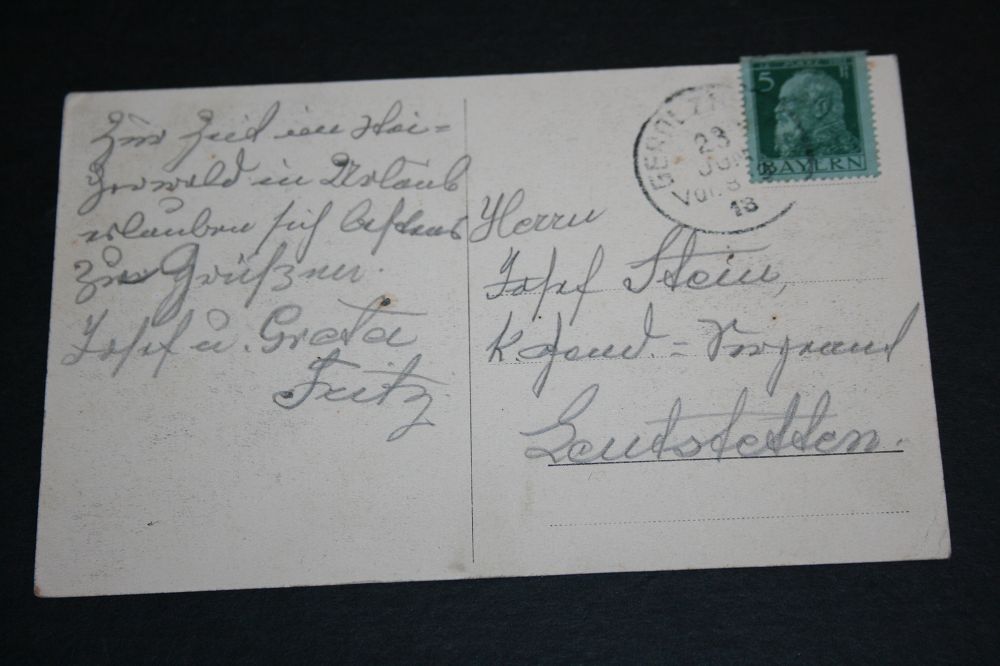 Zur Zeit im Stei=
gerwald in Urlaub
erlauben sich bestens
zu Grüßen.
Josef u. Greta
Fritz
GEROLZH
23
JUN
VOR. 8
13
5
BAYERN
Herrn
Josef Stein,
K. Gend. =
Leutstetten.